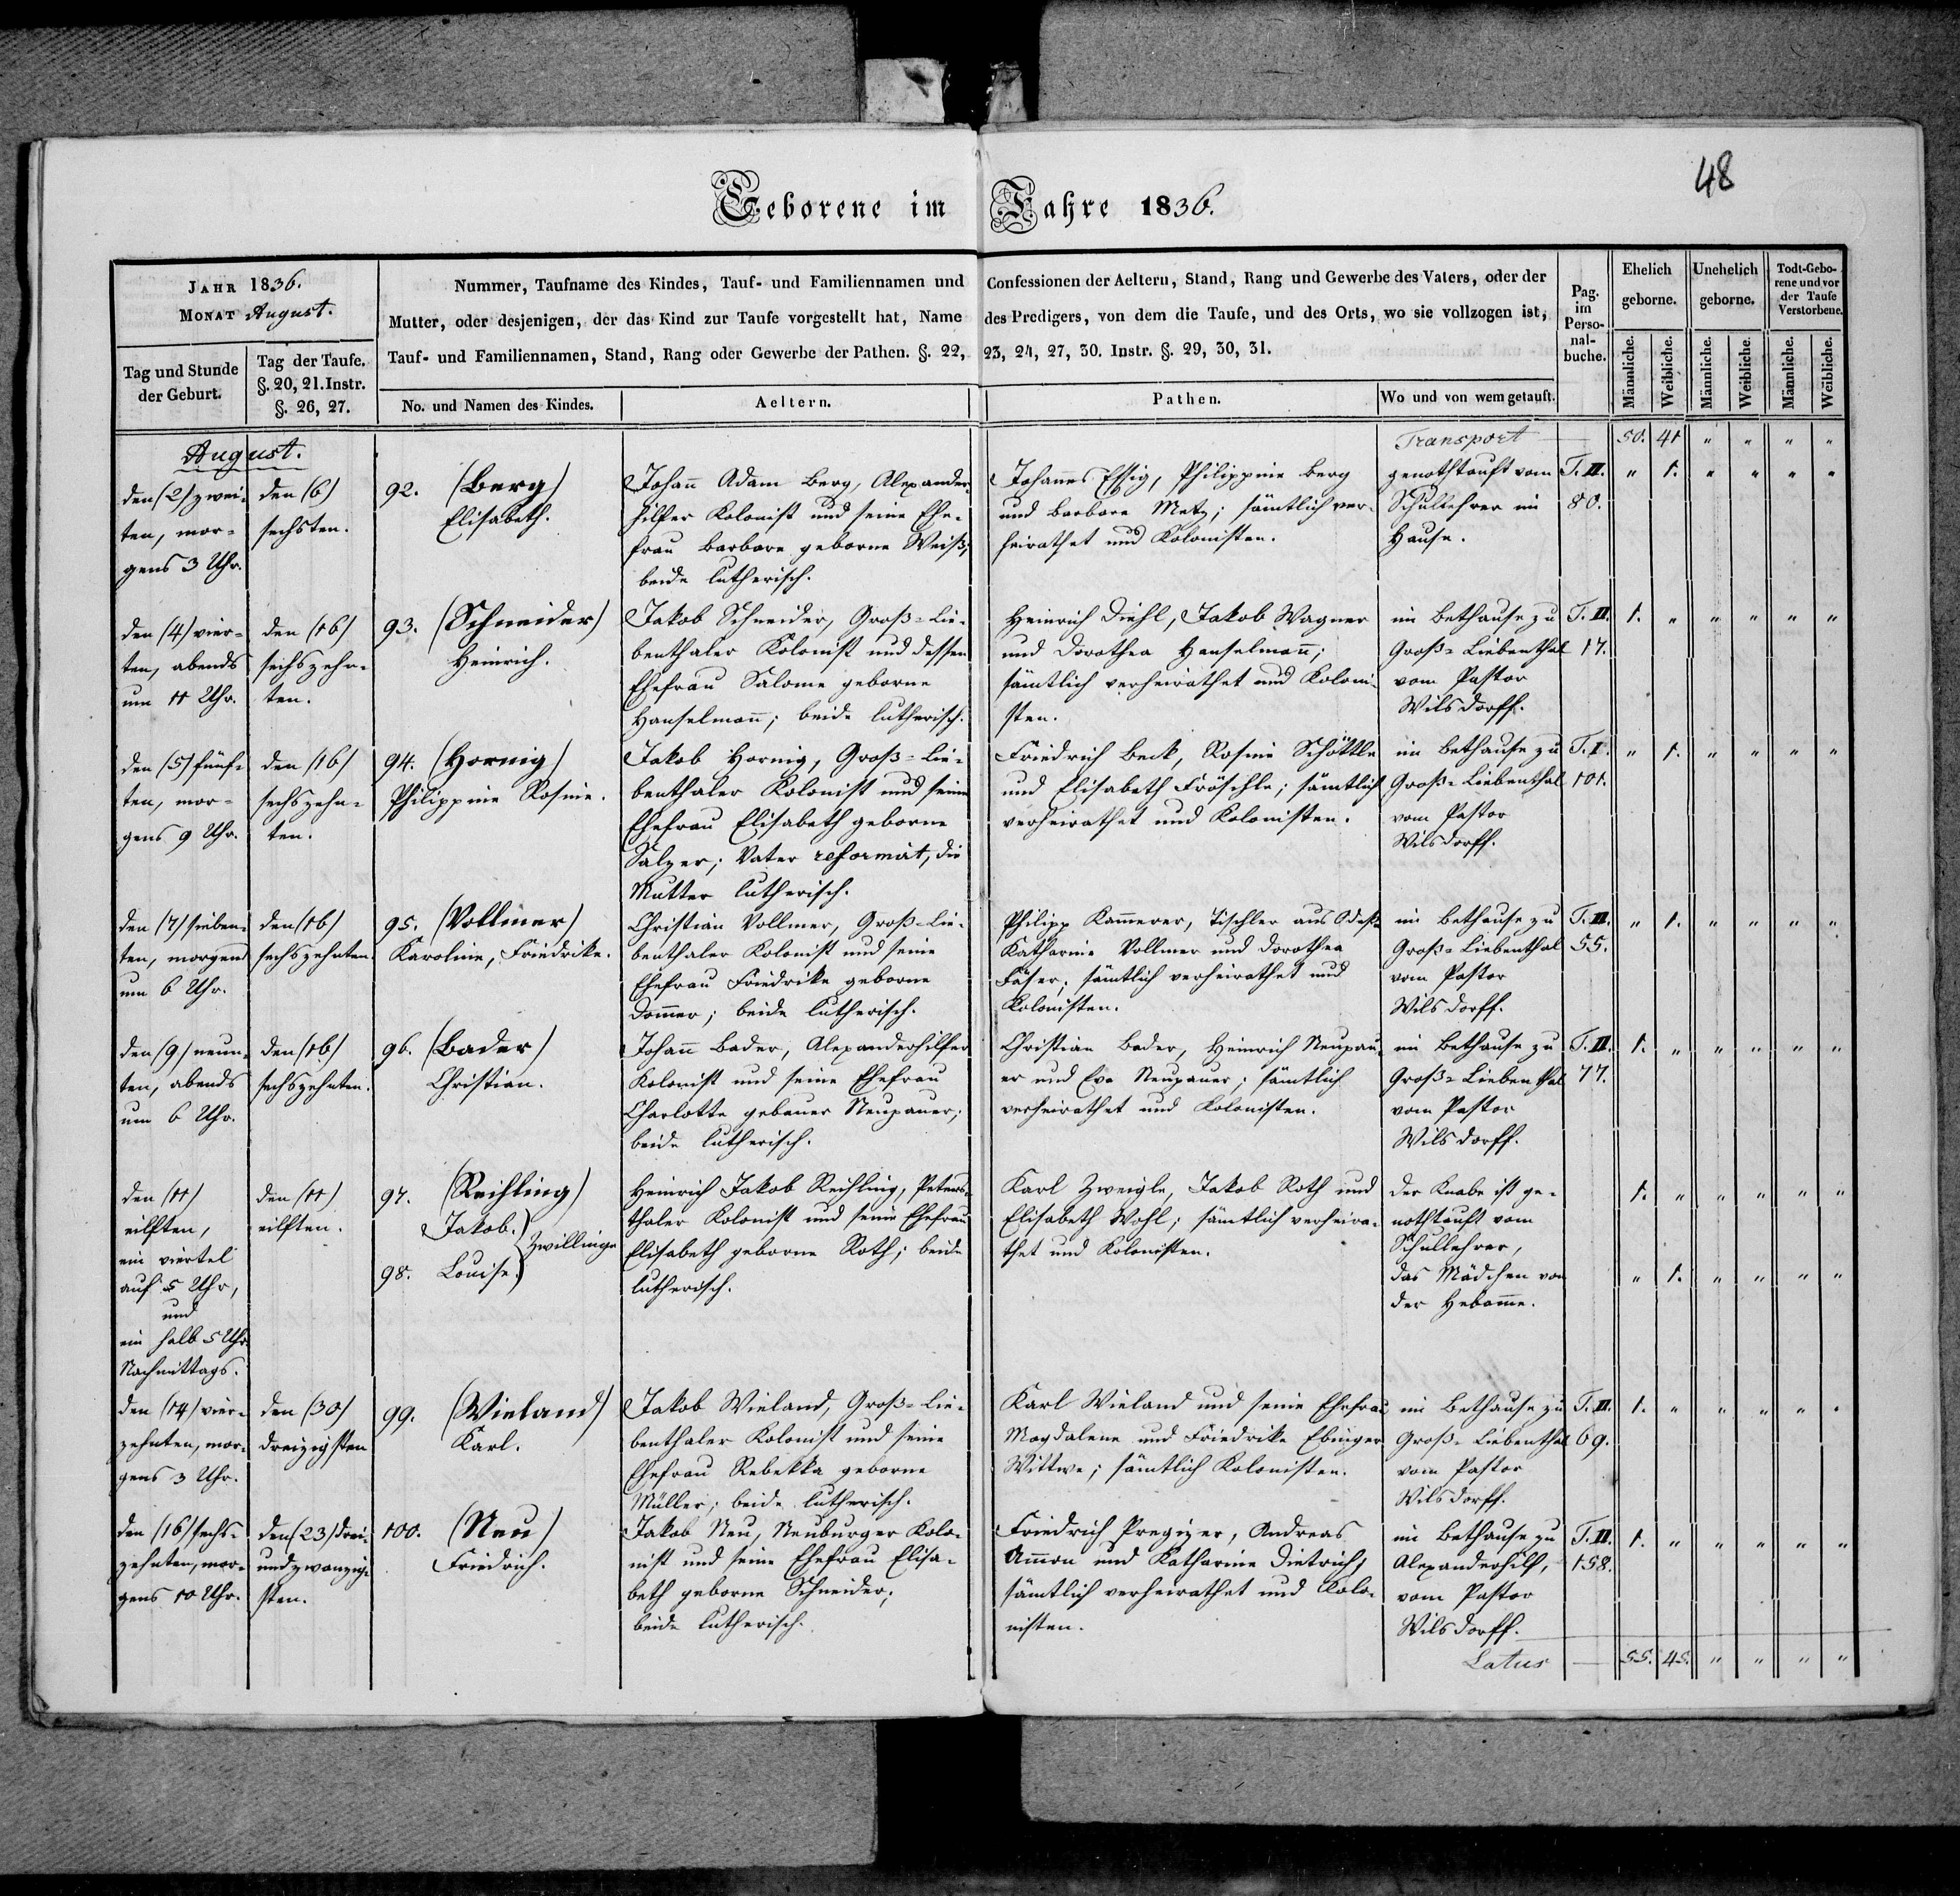 48
Geborene im Jahre 1836.
JAHR 1836.
MONAT August.
Tag und Stunde
der Geburt.
Tag der Taufe.
§. 20, 21. Instr.
§. 26, 27.
Nummer, Taufname des Kindes, Tauf- und Familiennamen und Confessionen der Aeltern, Stand, Rang und Gewerbe des Vaters, oder der
Mutter, oder desjenigen, der das Kind zur Taufe vorgestellt hat, Name des Predigers, von dem die Taufe, und des Orts, wo sie vollzogen ist,
Tauf- und Familiennamen, Stand, Rang oder Gewerbe der Pathen. §. 22, 23, 24, 27, 30. Instr. §. 29, 30, 31.
No. und Namen des Kindes.
Aeltern.
Pathen.
Wo und von wem getauft.
Pag.
im
Perso-
nal-
buche.
Ehelich
geborne.
Unehelich
geborne.
Todt-Gebo-
rene und vor
der Taufe
Verstorbene.
Männliche.
Weibliche.
Männliche.
Weibliche.
Männliche.
Weibliche.
Transport — 50. 41 " " " "
August.
den (2) zwei-
ten, mor-
gens 3 Uhr.
den (6)
sechsten.
92. (Berg)
Elisabeth.
Johann Adam Berg, Alexander-
hilfer Kolonist und seine Ehe-
frau Barbara geborne Weiß;
beide lutherisch.
Johannes Essig, Philippine Berg
und Barbara Metz; sämtlich ver-
heirathet und Kolonisten.
genothtauft vom
Schullehrer im
Hause.
T. III.
80.
" 1. " " " "
den (4) vier-
ten, abends
um 11 Uhr.
den (16)
sechszehn-
ten.
93. (Schneider)
Heinrich.
Jakob Schneider, Groß-Lie-
benthaler Kolonist und dessen
Ehefrau Salome geborne
Hanselmann; beide lutherisch.
Heinrich Diehl, Jakob Wagner
und Dorothea Hanselmann;
sämtlich verheirathet und Koloni-
sten.
im Bethause zu
Groß-Liebenthal
vom Pastor
Wilsdorff.
T. III.
17.
1. " " " " "
den (5) fünf-
ten, mor-
gens 9 Uhr.
den (16)
sechszehn-
ten.
94. (Hornig)
Philippine Rosine.
Jakob Hornig, Groß-Lie-
benthaler Kolonist und seine
Ehefrau Elisabeth geborne
Salzer; Vater reformirt, die
Mutter lutherisch.
Friedrich Beck, Rosine Schöttle
und Elisabeth Fröschle; sämtlich
verheirathet und Kolonisten.
im Bethause zu
Groß-Liebenthal
vom Pastor
Wilsdorff.
T. I.
101.
" 1. " " " "
den (7) sieben-
ten, morgens
um 6 Uhr.
den (16)
sechszehnten.
95. (Vollmer)
Karoline, Friedrike.
Christian Vollmer, Groß-Lie-
benthaler Kolonist und seine
Ehefrau Friedrike geborne
Dommer; beide lutherisch.
Philipp Kammerer, Tischler aus Odessa
Katharine Vollmer und Dorothea
Fäser; sämtlich verheirathet und
Kolonisten.
im Bethause zu
Groß-Liebenthal
vom Pastor
Wilsdorff.
T. III.
55.
" 1. " " " "
den (9) neun-
ten, abends
um 6 Uhr.
den (16)
sechszehnten.
96. (Bader)
Christian.
Johann Bader, Alexanderhilfer
Kolonist und seine Ehefrau
Charlotte geborner Neupauer;
beide lutherisch.
Christian Bader, Heinrich Neupau-
er und Eva Neupauer; sämtlich
verheirathet und Kolonisten.
im Bethause zu
Groß-Liebenthal
vom Pastor
Wilsdorff.
T. III.
77.
1. " " " " "
den (11)
eilften,
ein viertel
auf 5 Uhr,
und
ein halb 5 Uhr
Nachmittags.
den (11)
eilften.
97. (Reichling)
Jakob.
98. Louise.
Zwillinge
Heinrich Jakob Reichling, Peters-
thaler Kolonist und seine Ehefrau
Elisabeth geborne Roth; beide
lutherisch.
Karl Zweigle, Jakob Roth und
Elisabeth Wohl; sämtlich verheira-
thet und Kolonisten.
der Knabe ist ge-
nothtauft vom
Schullehrer,
das Mädchen von
der Hebamme.
1. " " " " "
" 1. " " " "
den (14) vier-
zehnten, mor-
gens 3 Uhr.
den (30)
dreizigsten
99. (Wieland)
Karl.
Jakob Wieland, Groß-Lie-
benthaler Kolonist und seine
Ehefrau Rebekka geborne
Müller; beide lutherisch.
Karl Wieland und seine Ehefrau
Magdalena und Friedrike Ebinger
Wittwe; sämtlich Kolonisten.
im Bethause zu
Groß-Liebenthal
vom Pastor
Wilsdorff.
T. III.
69.
1. " " " " "
den (16) sechs-
zehnten, mor-
gens 10 Uhr.
den (23) drei-
und zwanzig-
sten.
100. (Neu)
Friedrich.
Jakob Neu, Neuburger Kolo-
nist und seine Ehefrau Elisa-
beth geborne Schneider;
beide lutherisch.
Friedrich Pregizer, Andreas
Ammon und Katharine Dietrich;
sämtlich verheirathet und Kolo-
nisten.
im Bethause zu
Alexanderhilf,
vom Pastor
Wilsdorff.
T. II.
158.
1. " " " " "
Latus — 55. 45. " " " "